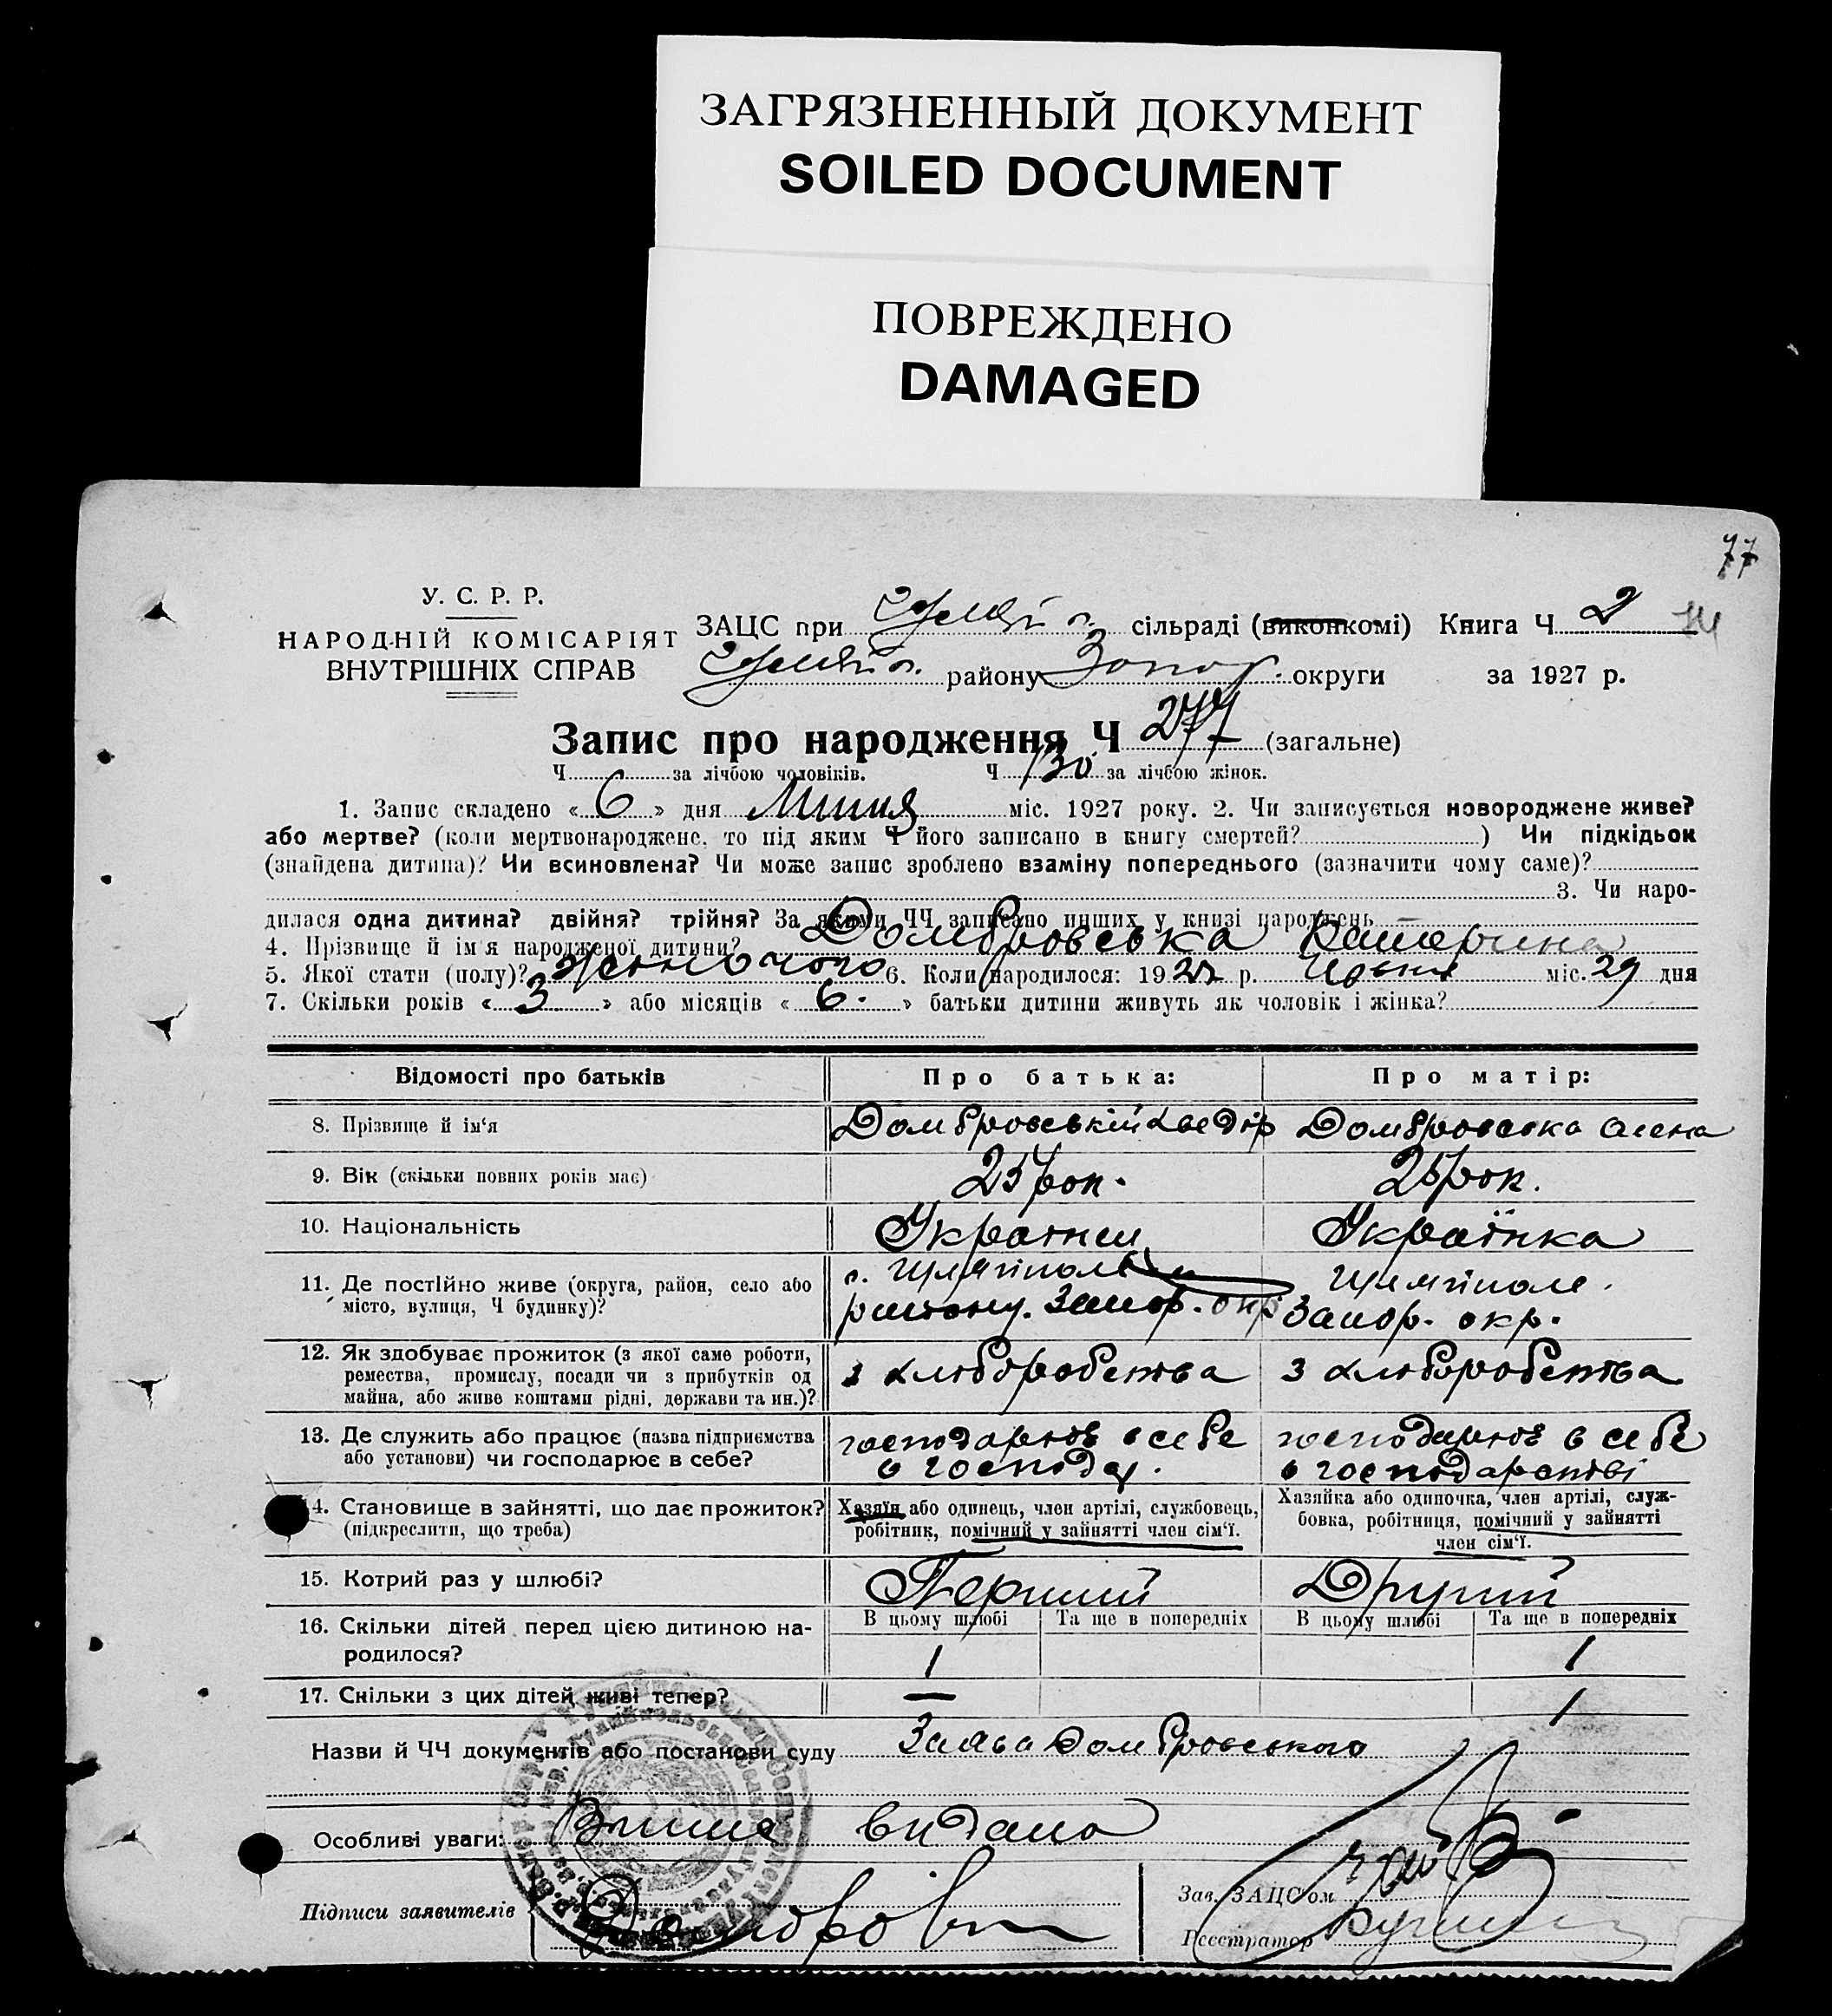 ЗАГРЯЗНЕННЫЙ ДОКУМЕНТ
SOILED DOCUMENT
ПОВРЕЖДЕНО
DAMAGED
77
У. С. Р. Р.
НАРОДНІЙ КОМІСАРІЯТ
ВНУТРІШНІХ СПРАВ
ЗАЦС при сільраді (виконкомі) Книга Ч 2
району Запор. округи за 1927 р.
Запис про народження Ч 277 (загальне)
Ч за лічбою чоловіків. Ч 130 за лічбою жінок.
1. Запис складено « 6 » дня Липня міс. 1927 року. 2. Чи записується новороджене живе?
або мертве? (коли мертвонароджене, то під яким Ч його записано в книгу смертей? ) Чи підкідьок
(знайдена дитина)? Чи всиновлена? Чи може запис зроблено взаміну попереднього (зазначити чому саме)?
3. Чи наро-
дилася одна дитина? двійня? трійня? За якими ЧЧ записано инших у книзі народжень —
4. Прізвище й ім'я народженої дитини? Домбровська Катерина
5. Якої стати (полу)? жіночого 6. Коли народилося: 1927 р. Июня міс. 29 дня
7. Скільки років « 3 » або місяців « 6. » батьки дитини живуть як чоловік і жінка?
Відомості про батьків Про батька: Про матір:
8. Прізвище й ім'я Домбровський Хведір Домбровська Олена
9. Вік (скільки повних років має) 25 рок. 25 рок.
10. Національність Українец Українка
11. Де постійно живе (округа, район, село або
місто, вулиця, Ч будинку)?
району. Запор. окр Запор. окр.
12. Як здобуває прожиток (з якої саме роботи,
ремества, промислу, посади чи з прибутків од
майна, або живе коштами рідні, держави та ин.)?
з хліборобства з хліборобства
13. Де служить або працює (назва підприємства
або установи) чи господарює в себе?
господарює в себе господарює в себе
в господ. в господарстві
14. Становище в зайнятті, що дає прожиток?
(підкреслити, що треба)
Хазяїн або одинець, член артілі, службовець,
робітник, помічний у зайнятті член сім'ї.
Хазяйка або одиночка, член артілі, служ-
бовка, робітниця, помічний у зайнятті
член сім'ї.
15. Котрий раз у шлюбі? Перший Другий
16. Скільки дітей перед цією дитиною на-
родилося?
В цьому шлюбі Та ще в попередніх В цьому шлюбі Та ще в попередніх
1 1
17. Скільки з цих дітей живі тепер? — 1
Назви й ЧЧ документів або постанови суду Заява Домбровського
Особливі уваги: видана
Підписи заявителів
Зав. ЗАЦС'ом
Реєстратор